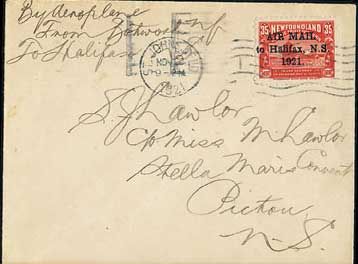 By Aeroplane
from Botwood Nf
To Halifax
ST. JOHN'S
NOV
1921
NEWFOUNDLAND
35 35
AIR MAIL
to Halifax, N.S.
1921.
S. J. Lawlor
c/o Miss M. Lawlor
Stella Maris Convent
Pictou
N.S.